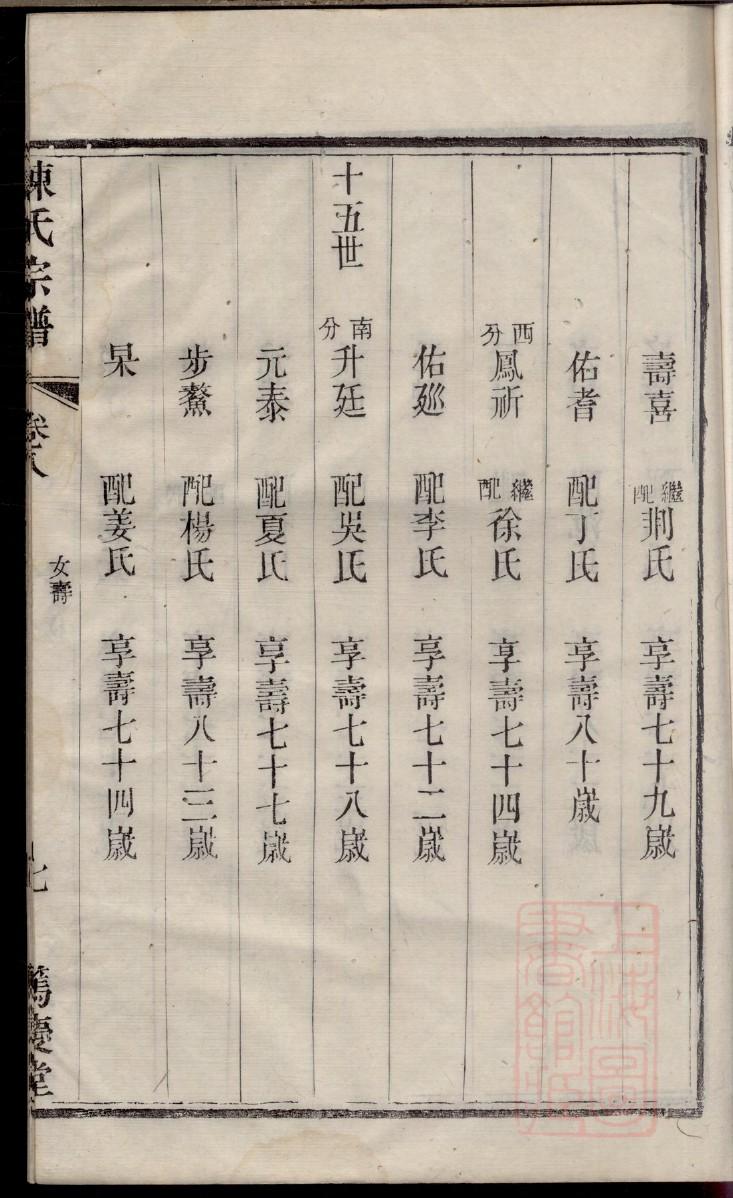 壽喜 繼配荆氏 享壽七十九歲
佑耆 配丁氏 享壽八十歲
西分 鳳祈 繼配徐氏 享壽七十四歲
佑廵 配李氏 享壽七十二歲
十五世 南分 升廷 配吳氏 享壽七十八歲
元泰 配夏氏 享壽七十七歲
步鰲 配楊氏 享壽八十三歲
杲 配姜氏 享壽七十四歲
陳氏宗譜 卷八 女壽 七 篤慶堂
上海圖書館藏